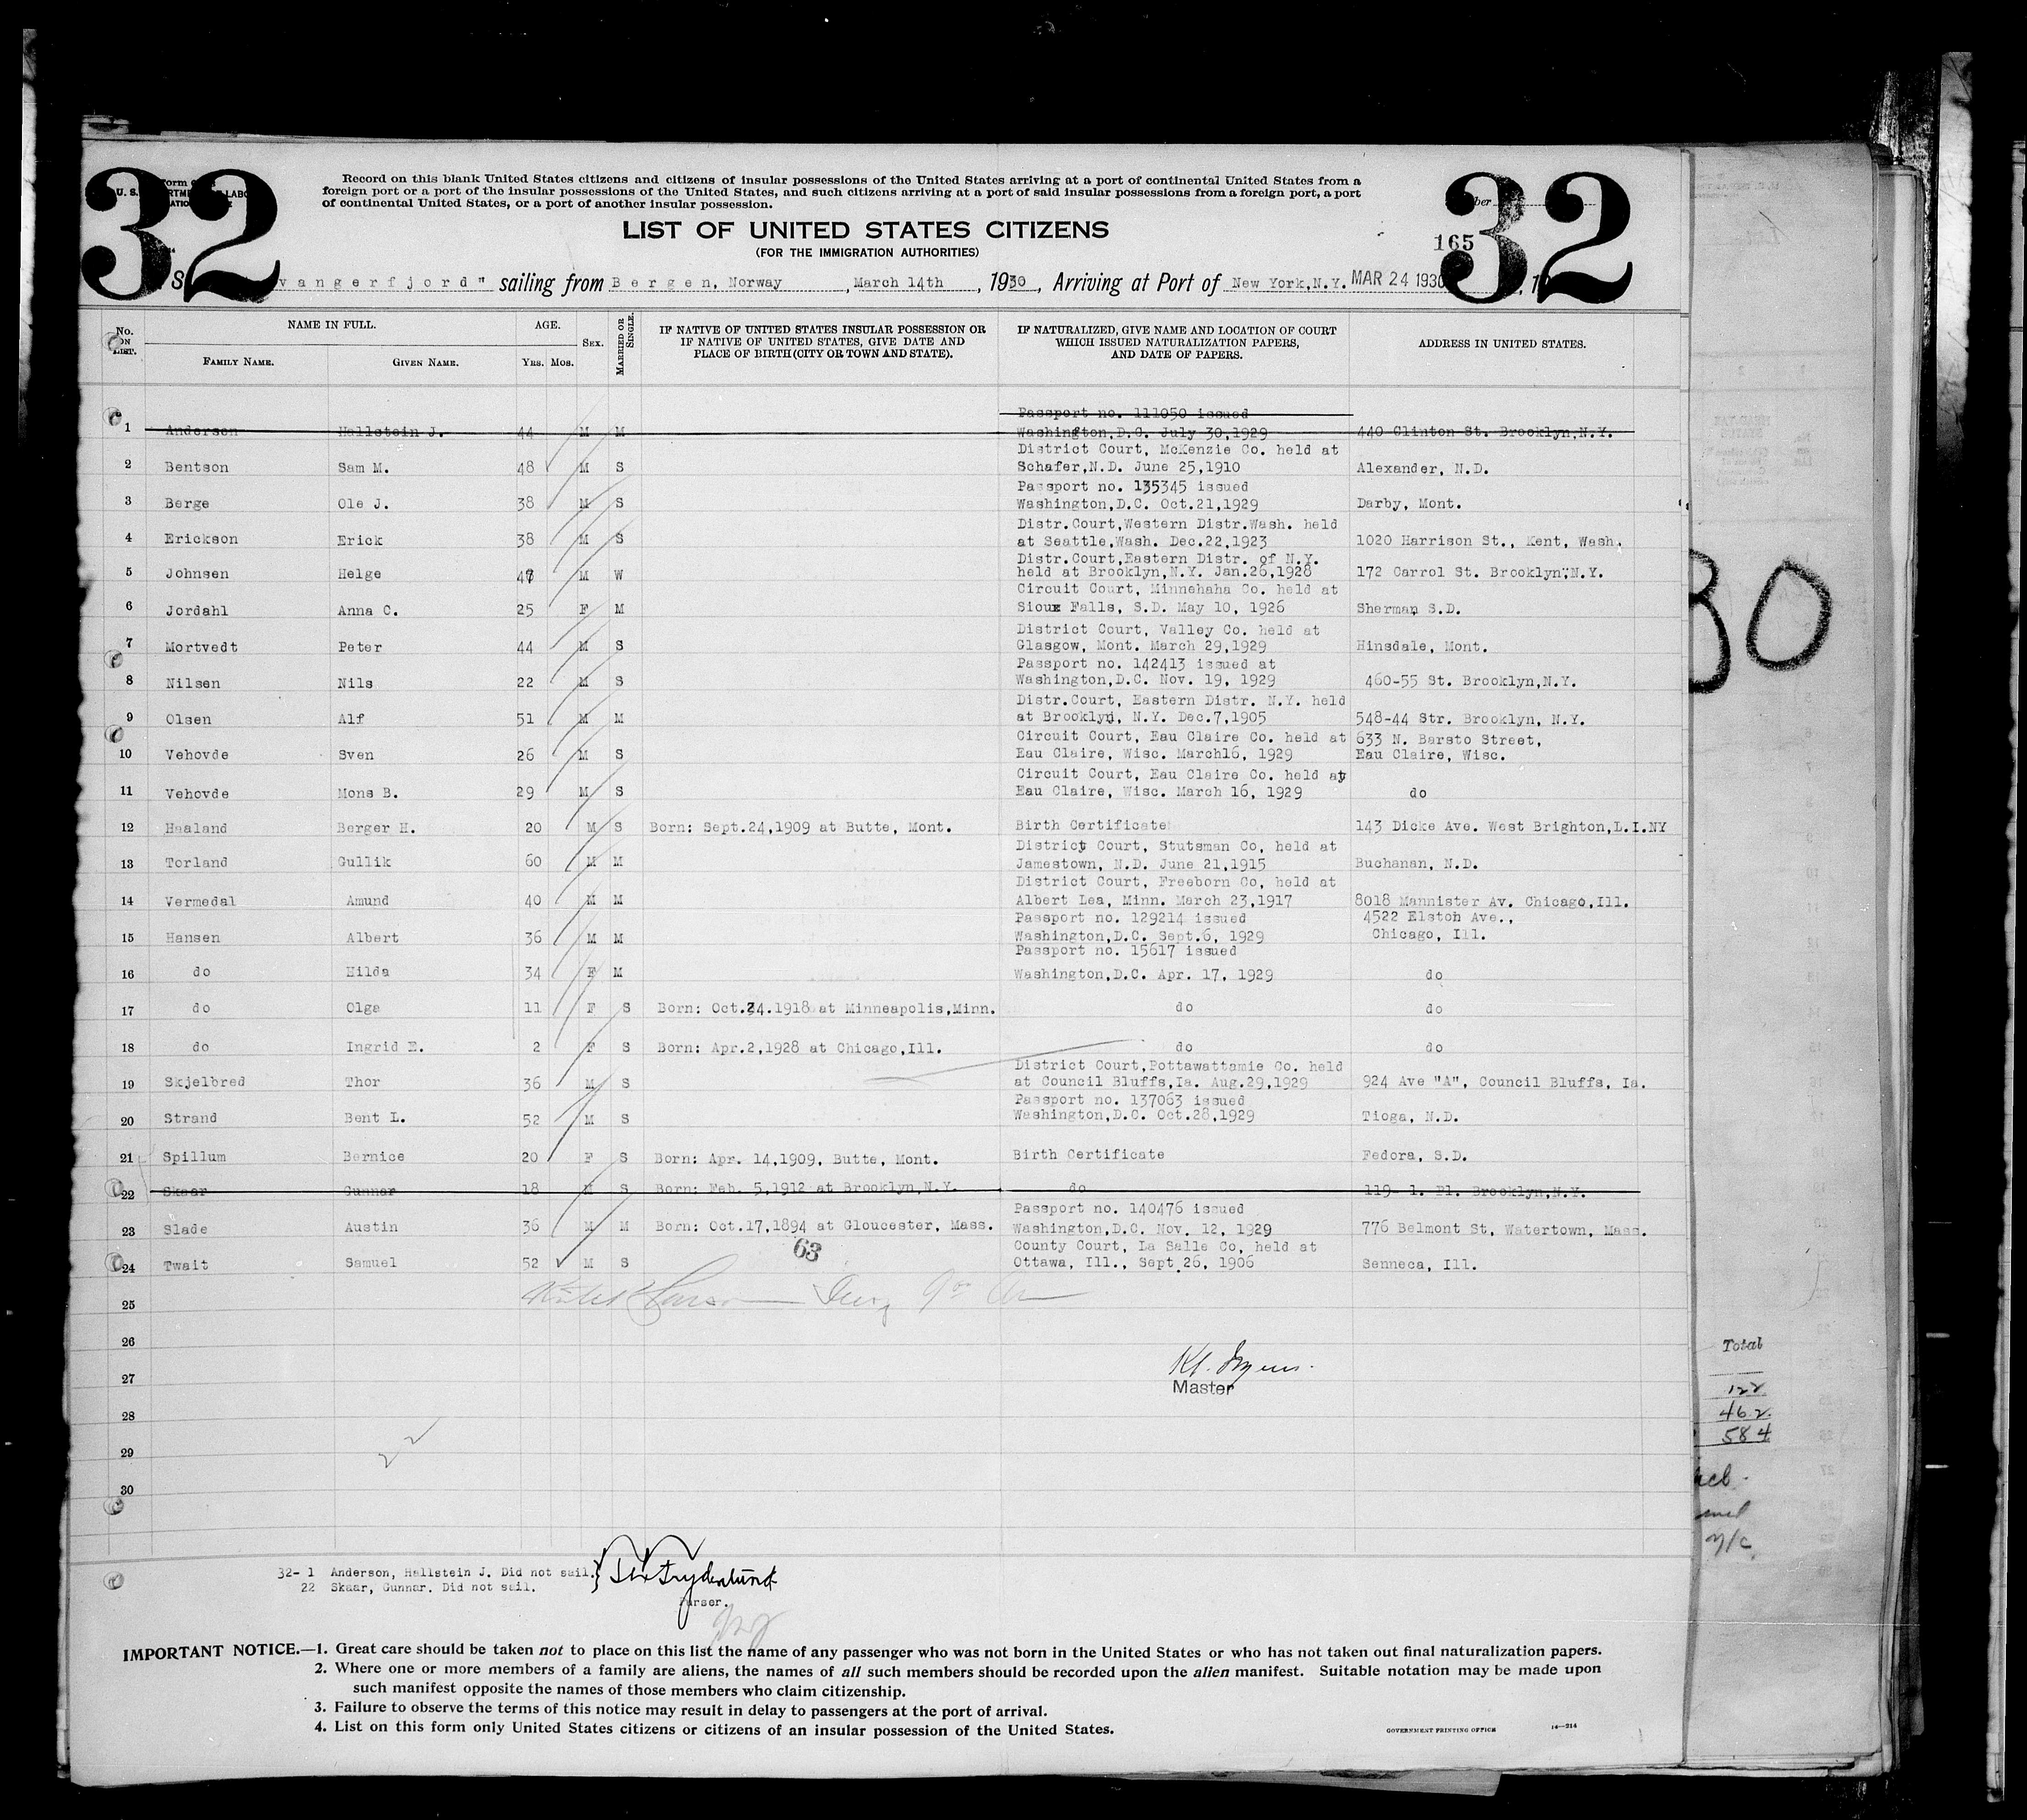 32
32
165
Record on this blank United States citizens and citizens of insular possessions of the United States arriving at a port of continental United States from a
foreign port or a port of the insular possessions of the United States, and such citizens arriving at a port of said insular possessions from a foreign port, a port
of continental United States, or a port of another insular possession.
LIST OF UNITED STATES CITIZENS
(FOR THE IMMIGRATION AUTHORITIES)
S vangerfjord" sailing from Bergen, Norway, March 14th, 1930, Arriving at Port of New York,N.Y. MAR 24 1930
No. ON LIST. NAME IN FULL. AGE. SEX. MARRIED OR SINGLE. IF NATIVE OF UNITED STATES INSULAR POSSESSION OR IF NATIVE OF UNITED STATES, GIVE DATE AND PLACE OF BIRTH (CITY OR TOWN AND STATE). IF NATURALIZED, GIVE NAME AND LOCATION OF COURT WHICH ISSUED NATURALIZATION PAPERS, AND DATE OF PAPERS. ADDRESS IN UNITED STATES.
FAMILY NAME. GIVEN NAME. YRS. MOS.
Passport no. 111050 issued
1 Anderson Hallstein J. 44 M M Washington,D.C. July 30,1929 440 Clinton St. Brooklyn,N.Y.
District Court, McKenzie Co. held at
2 Bentson Sam M. 48 M S Schafer,N.D. June 25,1910 Alexander, N.D.
Passport no. 135345 issued
3 Berge Ole J. 38 M S Washington,D.C. Oct.21,1929 Darby, Mont.
Distr.Court,Western Distr.Wash. held
4 Erickson Erick 38 M S at Seattle,Wash. Dec.22,1923 1020 Harrison St., Kent, Wash.
Distr.Court,Eastern Distr. of N.Y.
5 Johnsen Helge M W held at Brooklyn,N.Y. Jan.26,1928 172 Carrol St. Brooklyn,N.Y.
Circuit Court, Minnehaha Co. held at
6 Jordahl Anna C. 25 F M Sioux Falls, S.D. May 10, 1926 Sherman S.D.
District Court, Valley Co. held at
7 Mortvedt Peter 44 M S Glasgow, Mont. March 29,1929 Hinsdale, Mont.
Passport no. 142413 issued at
8 Nilsen Nils 22 M S Washington,D.C. Nov. 19, 1929 460-55 St. Brooklyn,N.Y.
Distr.Court, Eastern Distr. N.Y. held
9 Olsen Alf 51 M M at Brooklyn, N.Y. Dec.7,1905 548-44 Str. Brooklyn, N.Y.
Circuit Court, Eau Claire Co. held at 633 N. Barsto Street,
10 Vehovde Sven 26 M S Eau Claire, Wisc. March16, 1929 Eau Claire, Wisc.
Circuit Court, Eau Claire Co. held at
11 Vehovde Mons B. 29 M S Eau Claire, Wisc. March 16, 1929 do
12 Haaland Berger H. 20 M S Born: Sept.24,1909 at Butte, Mont. Birth Certificate 143 Dicke Ave. West Brighton,L.I.NY
District Court, Stutsman Co, held at
13 Torland Gullik 60 M M Jamestown, N.D. June 21,1915 Buchanan, N.D.
District Court, Freeborn Co, held at
14 Vermedal Amund 40 M M Albert Lea, Minn. March 23,1917 8018 Mannister Av. Chicago,Ill.
Passport no. 129214 issued 4522 Elston Ave.,
15 Hansen Albert 36 M M Washington,D.C. Sept.6, 1929 Chicago, Ill.
Passport no. 15617 issued
16 do Hilda 34 F M Washington,D.C. Apr. 17, 1929 do
17 do Olga 11 F S Born: Oct.24.1918 at Minneapolis,Minn. do do
18 do Ingrid E. 2 F S Born: Apr.2,1928 at Chicago,Ill. do do
District Court,Pottawattamie Co. held
19 Skjelbred Thor 36 M S at Council Bluffs,Ia. Aug.29,1929 924 Ave "A", Council Bluffs, Ia.
Passport no. 137063 issued
20 Strand Bent L. 52 M S Washington,D.C. Oct.28,1929 Tioga, N.D.
21 Spillum Bernice 20 F S Born: Apr. 14,1909, Butte, Mont. Birth Certificate Fedora, S.D.
22 Skaar Gunnar 18 M S Born: Feb. 5,1912 at Brooklyn,N.Y. do 119- 1. Pl. Brooklyn,N.Y.
Passport no. 140476 issued
23 Slade Austin 36 M M Born: Oct.17,1894 at Gloucester, Mass. Washington,D.C. Nov. 12, 1929 776 Belmont St, Watertown, Mass.
63 County Court, La Salle Co, held at
24 Twait Samuel 52 M S Ottawa, Ill., Sept.26, 1906 Senneca, Ill.
25
26
27
Master
28
29
30
32- 1 Anderson, Hallstein J. Did not sail.
22 Skaar, Gunnar. Did not sail.
Purser.
IMPORTANT NOTICE.—1. Great care should be taken not to place on this list the name of any passenger who was not born in the United States or who has not taken out final naturalization papers.
2. Where one or more members of a family are aliens, the names of all such members should be recorded upon the alien manifest. Suitable notation may be made upon
such manifest opposite the names of those members who claim citizenship.
3. Failure to observe the terms of this notice may result in delay to passengers at the port of arrival.
4. List on this form only United States citizens or citizens of an insular possession of the United States.
GOVERNMENT PRINTING OFFICE 14—214
30
Total
122
462
584